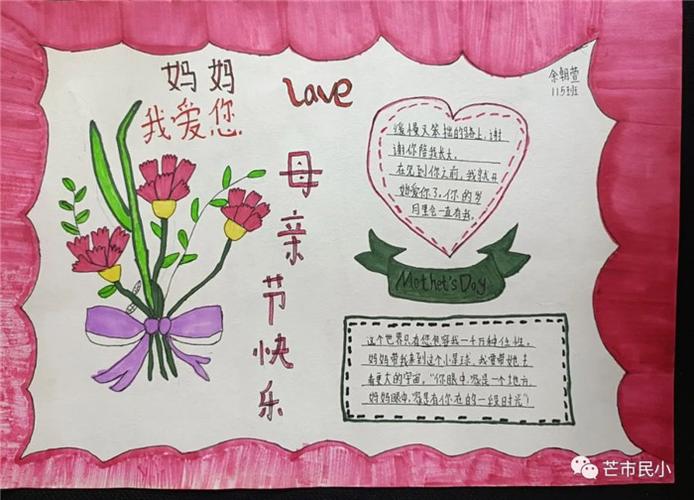 妈妈
我爱您
Lave
余朝萱
115班
母亲节快乐
缓慢又笨拙的路上，谢
谢你陪我长大。
在见到你之前，我就开
始爱你了。你的岁
月里会一直有我。
Mothet's Day
这个世界只有您包容我一千万种任性。
妈妈带我来到这个小星球，我要带她去
看更大的宇宙。"你眼中，家是一个地方
妈妈眼中，家是有你在的一段时光"）
芒市民小